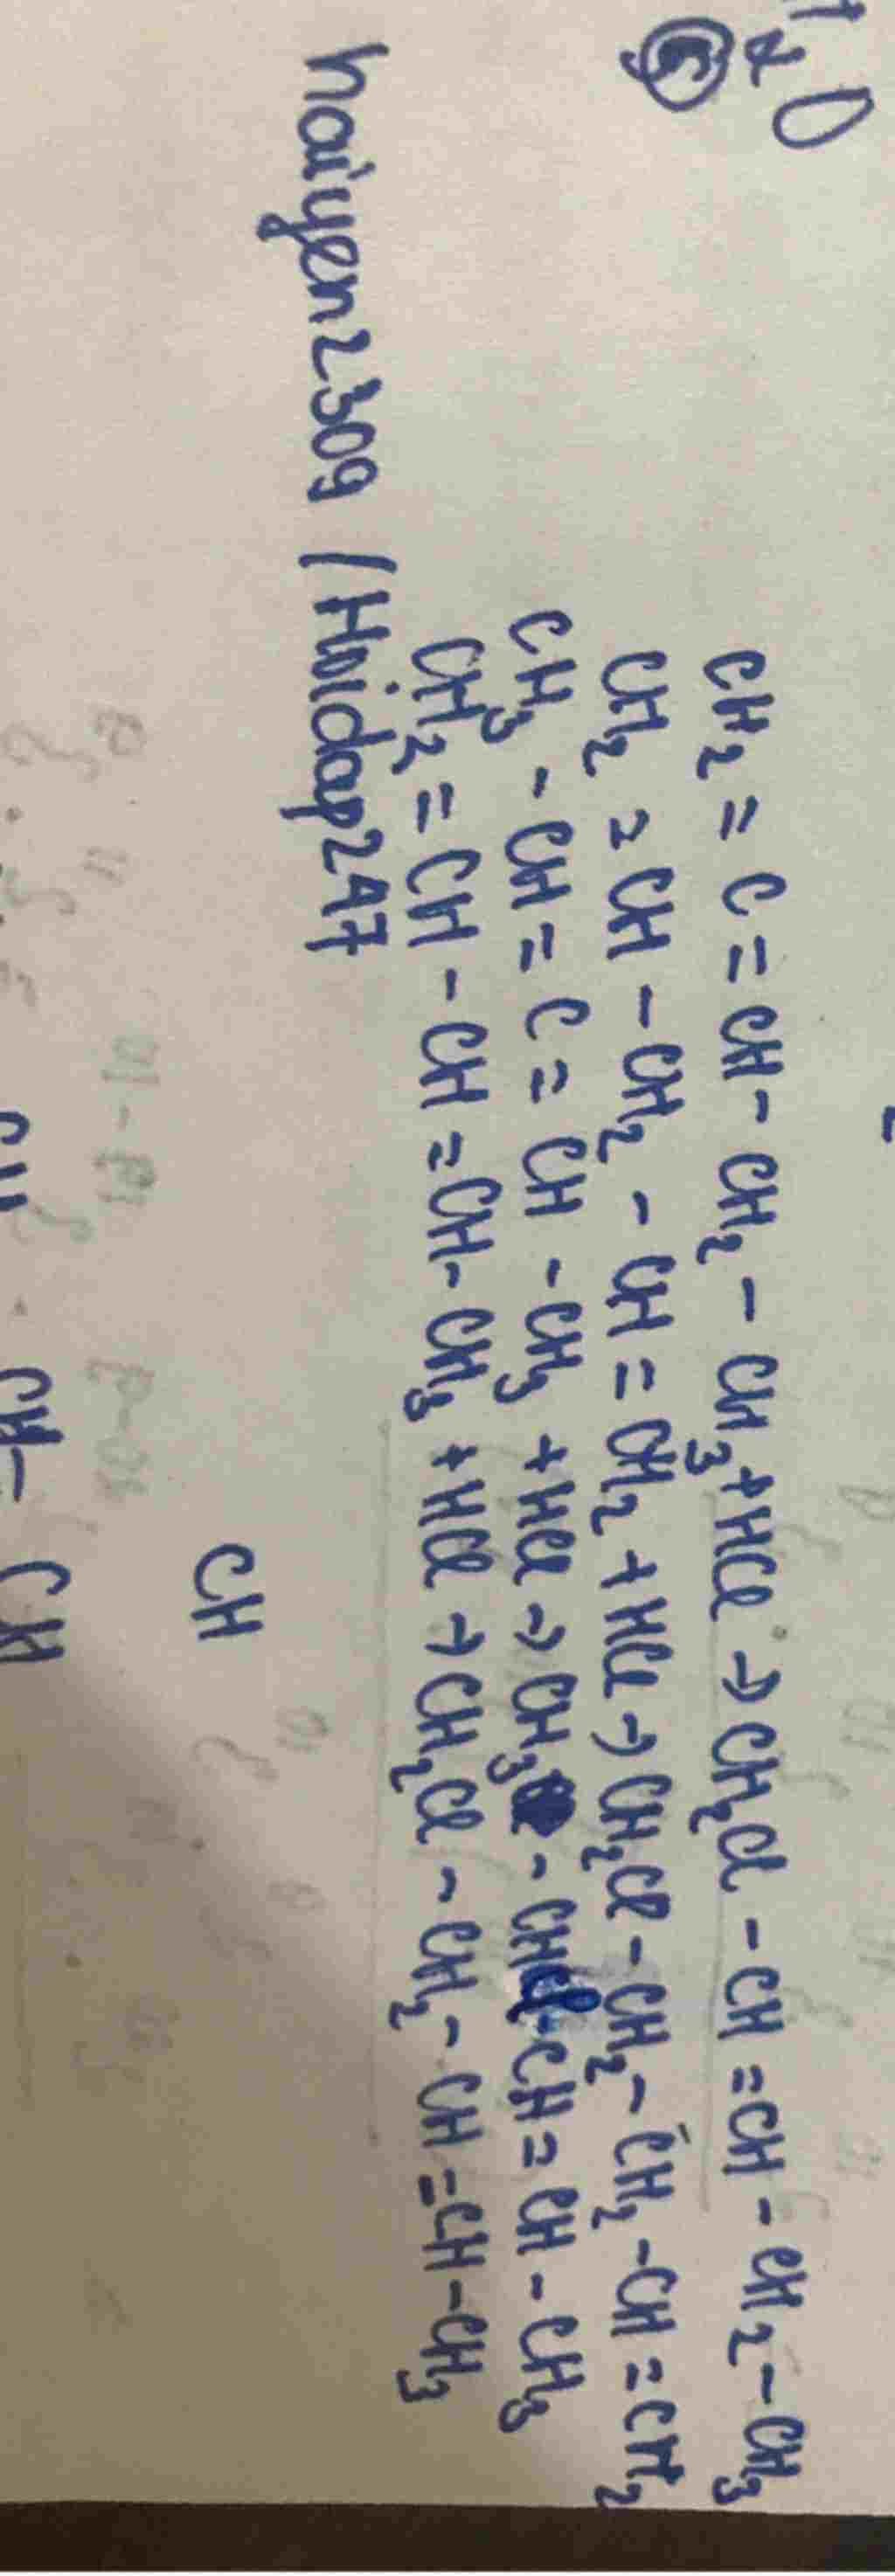 CH2 = C = CH - CH2 - CH3 + HCl → CH2Cl - CH = CH - CH2 - CH3
CH2 = CH - CH2 - CH = CH2 + HCl → CH2Cl - CH2 - CH2 - CH = CH2
CH3 - CH = C = CH - CH3 + HCl → CH3 - CHCl - CH = CH - CH3
CH2 = CH - CH = CH - CH3 + HCl → CH2Cl - CH2 - CH = CH - CH3
haiyen2309 / Hoidap247
CH
CH - CH